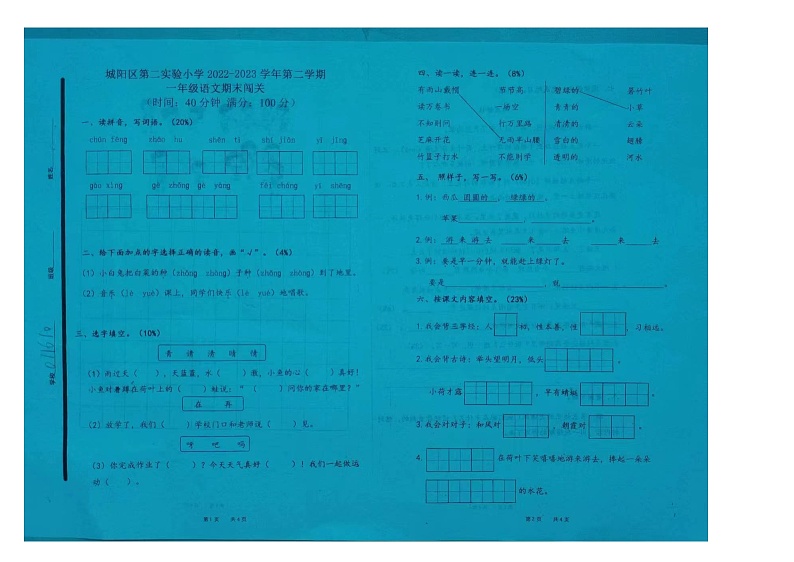 城阳区第二实验小学2022-2023学年第二学期
一年级语文期末闯关
(时间:40分钟 满分:100分)
一、读拼音,写词语。(20%)
chūn fēng
gāo xìng gè zhǒng gè yàng fēi cháng
二、给下面加点的字选择正确的读音,画“√”。(4%)
(1)小白兔把白菜的种(zhǒng zhòng)子种(zhǒng zhòng)到了地里。
(2)音乐(lè yuè)课上,同学们快乐(lè yuè)地唱歌。
三、选字填空。(10%)
青 请 清 晴 情
(1)雨过天( ),天蓝蓝,水( )澈,小鱼的心( )真好!
小鱼对着蹲在荷叶上的( )蛙说:“( )问你的家在哪里?”
在 再
(2)放学了,我们( )学校门口和老师说( )见。
呀 吧 吗
(3)你完成作业了( )?今天天气真好( )!我们一起做运
动( )。
第1页 共4页
姓名
班级
学校
四、读一读,连一连。(8%)
有雨山戴帽 节节高 碧绿的 番竹叶
读万卷书 一场空 青青的 小草
不知则问 行万里路 清清的 云朵
芝麻开花 无雨半山腰 雪白的 翅膀
竹篮子打水 不能则学 透明的 河水
五、照样子,写一写。(6%)
1.例:西瓜 圆圆的、绿绿的
苹果 、
2.例:游来游去 来 去 来 去
3.例:要是早一分钟,就能赶上绿灯了。
要是 ,就 。
六、按课文内容填空。(23%)
1.我会背三字经:人 初,性本善,性 ,习相远。
2.我会背古诗:举头望明月,低头 。
小荷才露 ,早有蜻蜓 。
3.我会对对子:和风对 ,朝霞对 。
4. 在荷叶下笑嘻嘻地游来游去,捧起一朵朵
的水花。
第2页 共4页